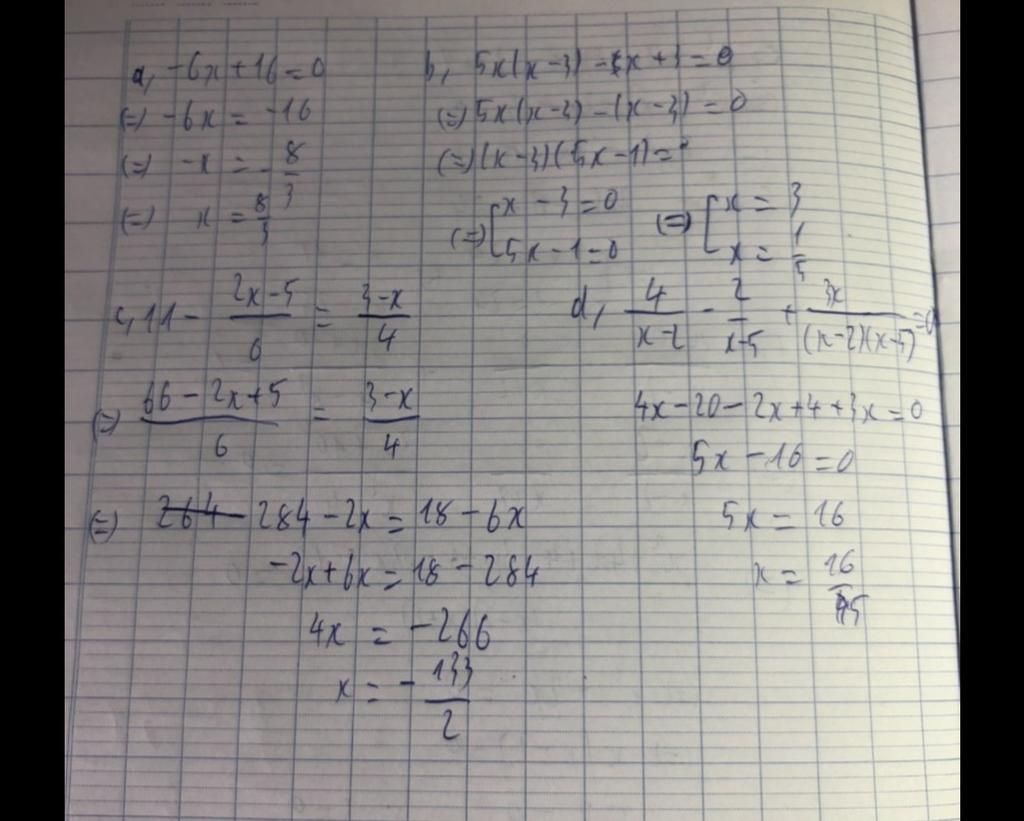 a, -6x+16=0
(=) -6x = -16
(=) -x = -8/3
(=) x = 8/3
b, 5x(x-3) -x+3=0
(=) 5x(x-3) -(x-3) = 0
(=) (x-3)(5x-1)=0
(=) [x-3=0 5x-1=0 (=) [x=3 x=1/5
c, 11 - (2x-5)/6 = (3-x)/4
(=) (66-2x+5)/6 = (3-x)/4
(=) 264 284-2x = 18-6x
-2x+6x = 18-284
4x = -266
x = -133/2
d, 4/(x-2) - 2/(x-5) + 3x/((x-2)(x-5)) =0
4x-20-2x+4+3x=0
5x-16=0
5x = 16
x = 16/5